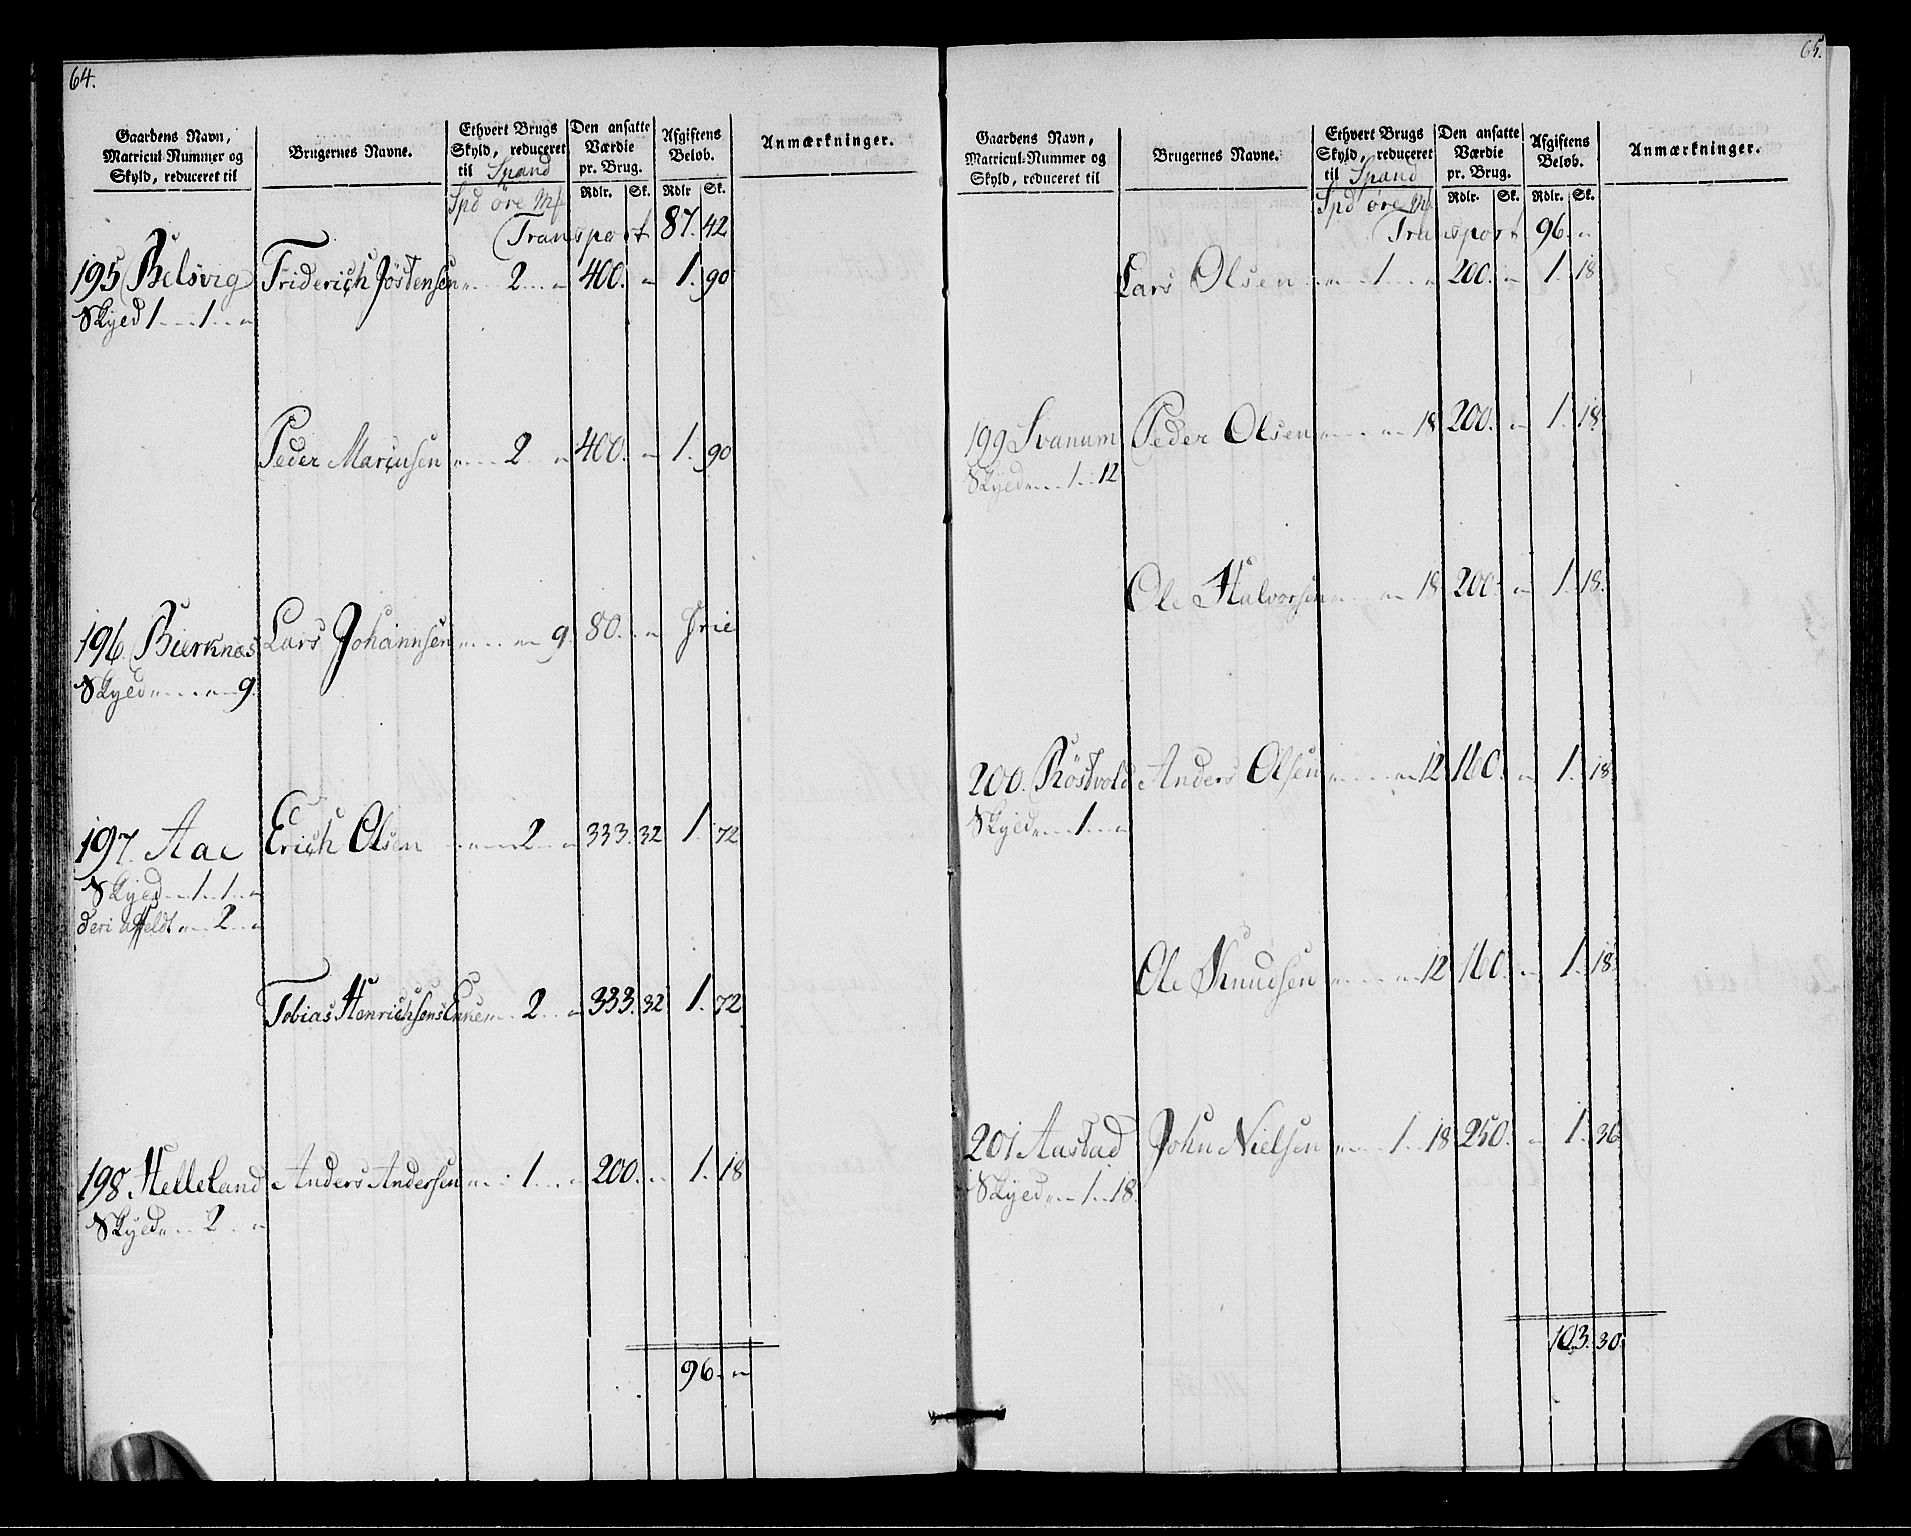 64.
Gaardens Navn, Matricul-Nummer og Skyld, reduceret til
Brugernes Navne.
Ethvert Brugs Skyld, reduceret til Spand
Den ansatte Værdie pr. Brug.
Afgiftens Beløb.
Anmærkninger.
Rdlr. Sk. Rdlr Sk.
Spd öre Mk
Transport 87. 42
195 Belsvig Friderich Jöstensen " 2 " 400. " 1. 90
Skyld 1 1 "
Peder Marcusen " 2 " 400. " 1. 90
196. Bierknæs Lars Johannsen " " 9. 80. " frie
Skyld " " 9.
197. Aae Erich Olsen " 2 " 333. 32 1. 72
Skyld 1 1 "
deri Ufeldt " 2 "
Tobias Henrichsens Enke " 2 " 333. 32 1. 72
198. Helleland Anders Andersen " 1 " 200. " 1. 18
Skyld " 2 "
96. "
65.
Gaardens Navn, Matricul-Nummer og Skyld, reduceret til
Brugernes Navne.
Ethvert Brugs Skyld, reduceret til Spand
Den ansatte Værdie pr. Brug.
Afgiftens Beløb.
Anmærkninger.
Rdlr. Sk. Rdlr. Sk.
Spd öre Mk
Transport 96. "
Lars Olsen " 1 " 200. " 1. 18
199 Svanum Peder Olsen " " 18 200. " 1. 18.
Skyld " 1 12
Ole Halvorsen " " 18. 200. " 1. 18.
200. Röstvold Anders Olsen " " 12 160. " 1. 18.
Skyld " 1 "
Ole Knudsen " " 12 160. " 1. 18.
201 Aastad John Nielsen " 1 18 250. " 1. 36
Skyld " 1 18.
103. 30.